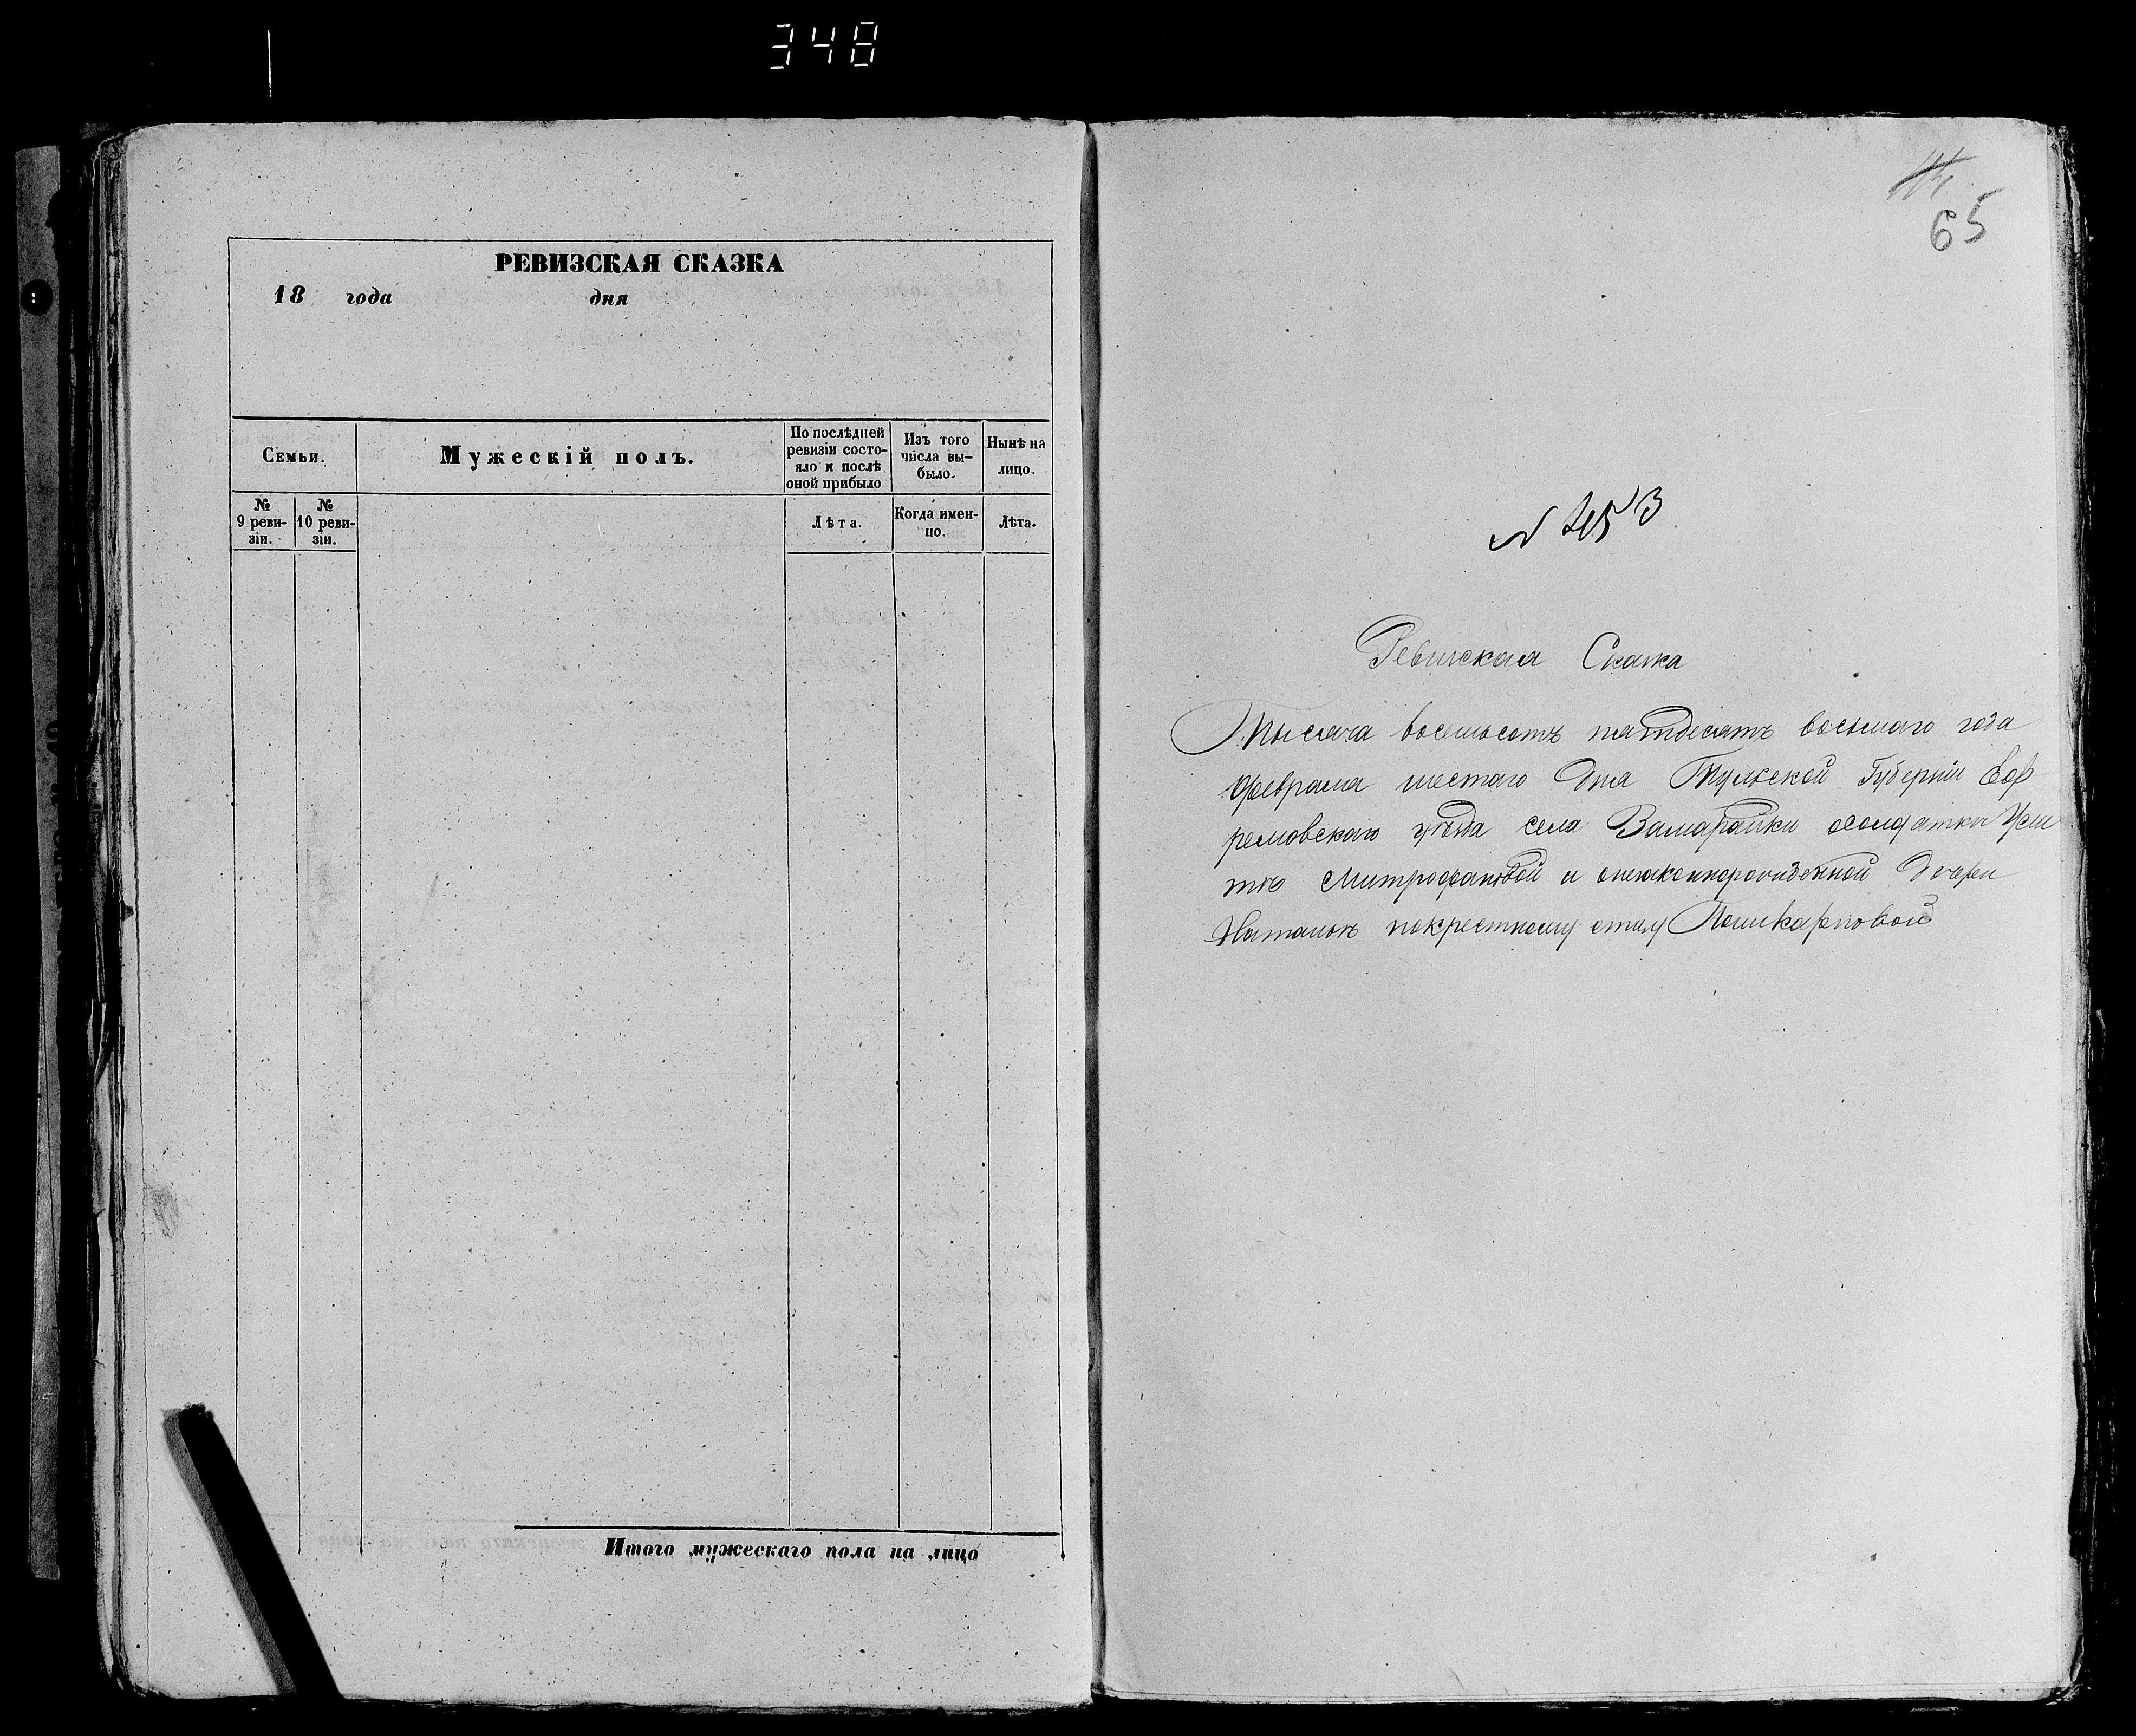 348
РЕВИЗСКАЯ СКАЗКА
18 года дня
Семьи.
Мужескій полъ.
По послѣдней
ревизіи состо-
яло и послѣ
оной прибыло
Изъ того
числа вы-
было.
Нынѣ на
лицо.
№
9 реви-
зіи.
№
10 реви-
зіи.
Лѣта.
Когда имен-
но.
Лѣта.
Итого мужескаго пола на лицо
65
N 453
Ревизская Сказка
Тысяча восемьсотъ пятидесятъ восьмаго года
февраля шестаго дня Тульской Губерніи Еф
ремовскаго уѣзда села Замарайки осолдатки
Митрофановой и онезаконнорожденной дочери
покрестному отцу Поликарповой